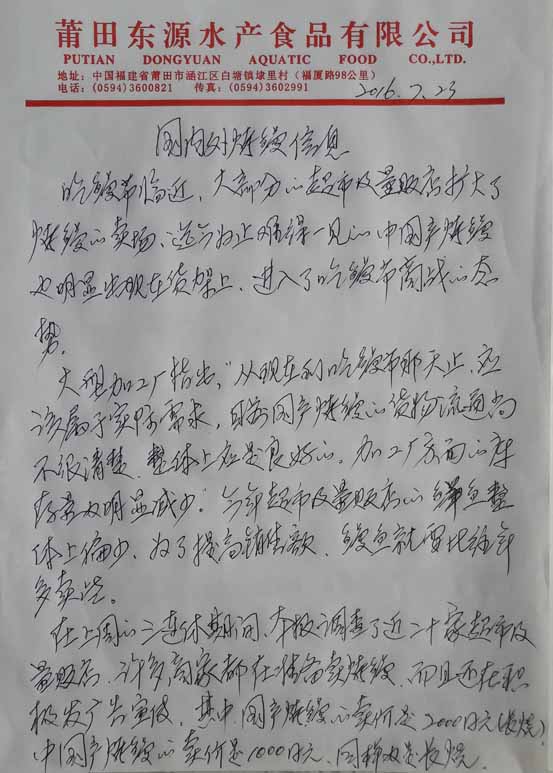 莆田东源水产食品有限公司
PUTIAN DONGYUAN AQUATIC FOOD CO.,LTD.
地址：中国福建省莆田市涵江区白塘镇埭里村（福厦路98公里）
电话：(0594)3600821 传真：(0594)3602991
2016.7.23
国内对烤鳗信息
吃鳗节临近，大部分的超市及量贩店扩大了
烤鳗的卖场，迄今为止难得一见的中国产烤鳗
也明显出现在货架上，进入了吃鳗节商战的态
势。
大型加工厂指出，“从现在到吃鳗节那天止，应
该属于实际需求，目前国产烤鳗的货物流通尚
不很清楚，整体上应是良好的，加工厂方面的库
存量也明显减少；今年超市及量贩店的鲜鱼整
体上偏少，为了提高销售额，鳗鱼就要比往年
多卖些。
在上周的三连休期间，本报调查了近二十家超市及
量贩店，许多商家都在准备卖烤鳗，而且还在积
极发广告宣传，其中，国产烤鳗的卖价是2000日元(长烧)
中国产烤鳗的卖价是1000日元，同样也是长烧。